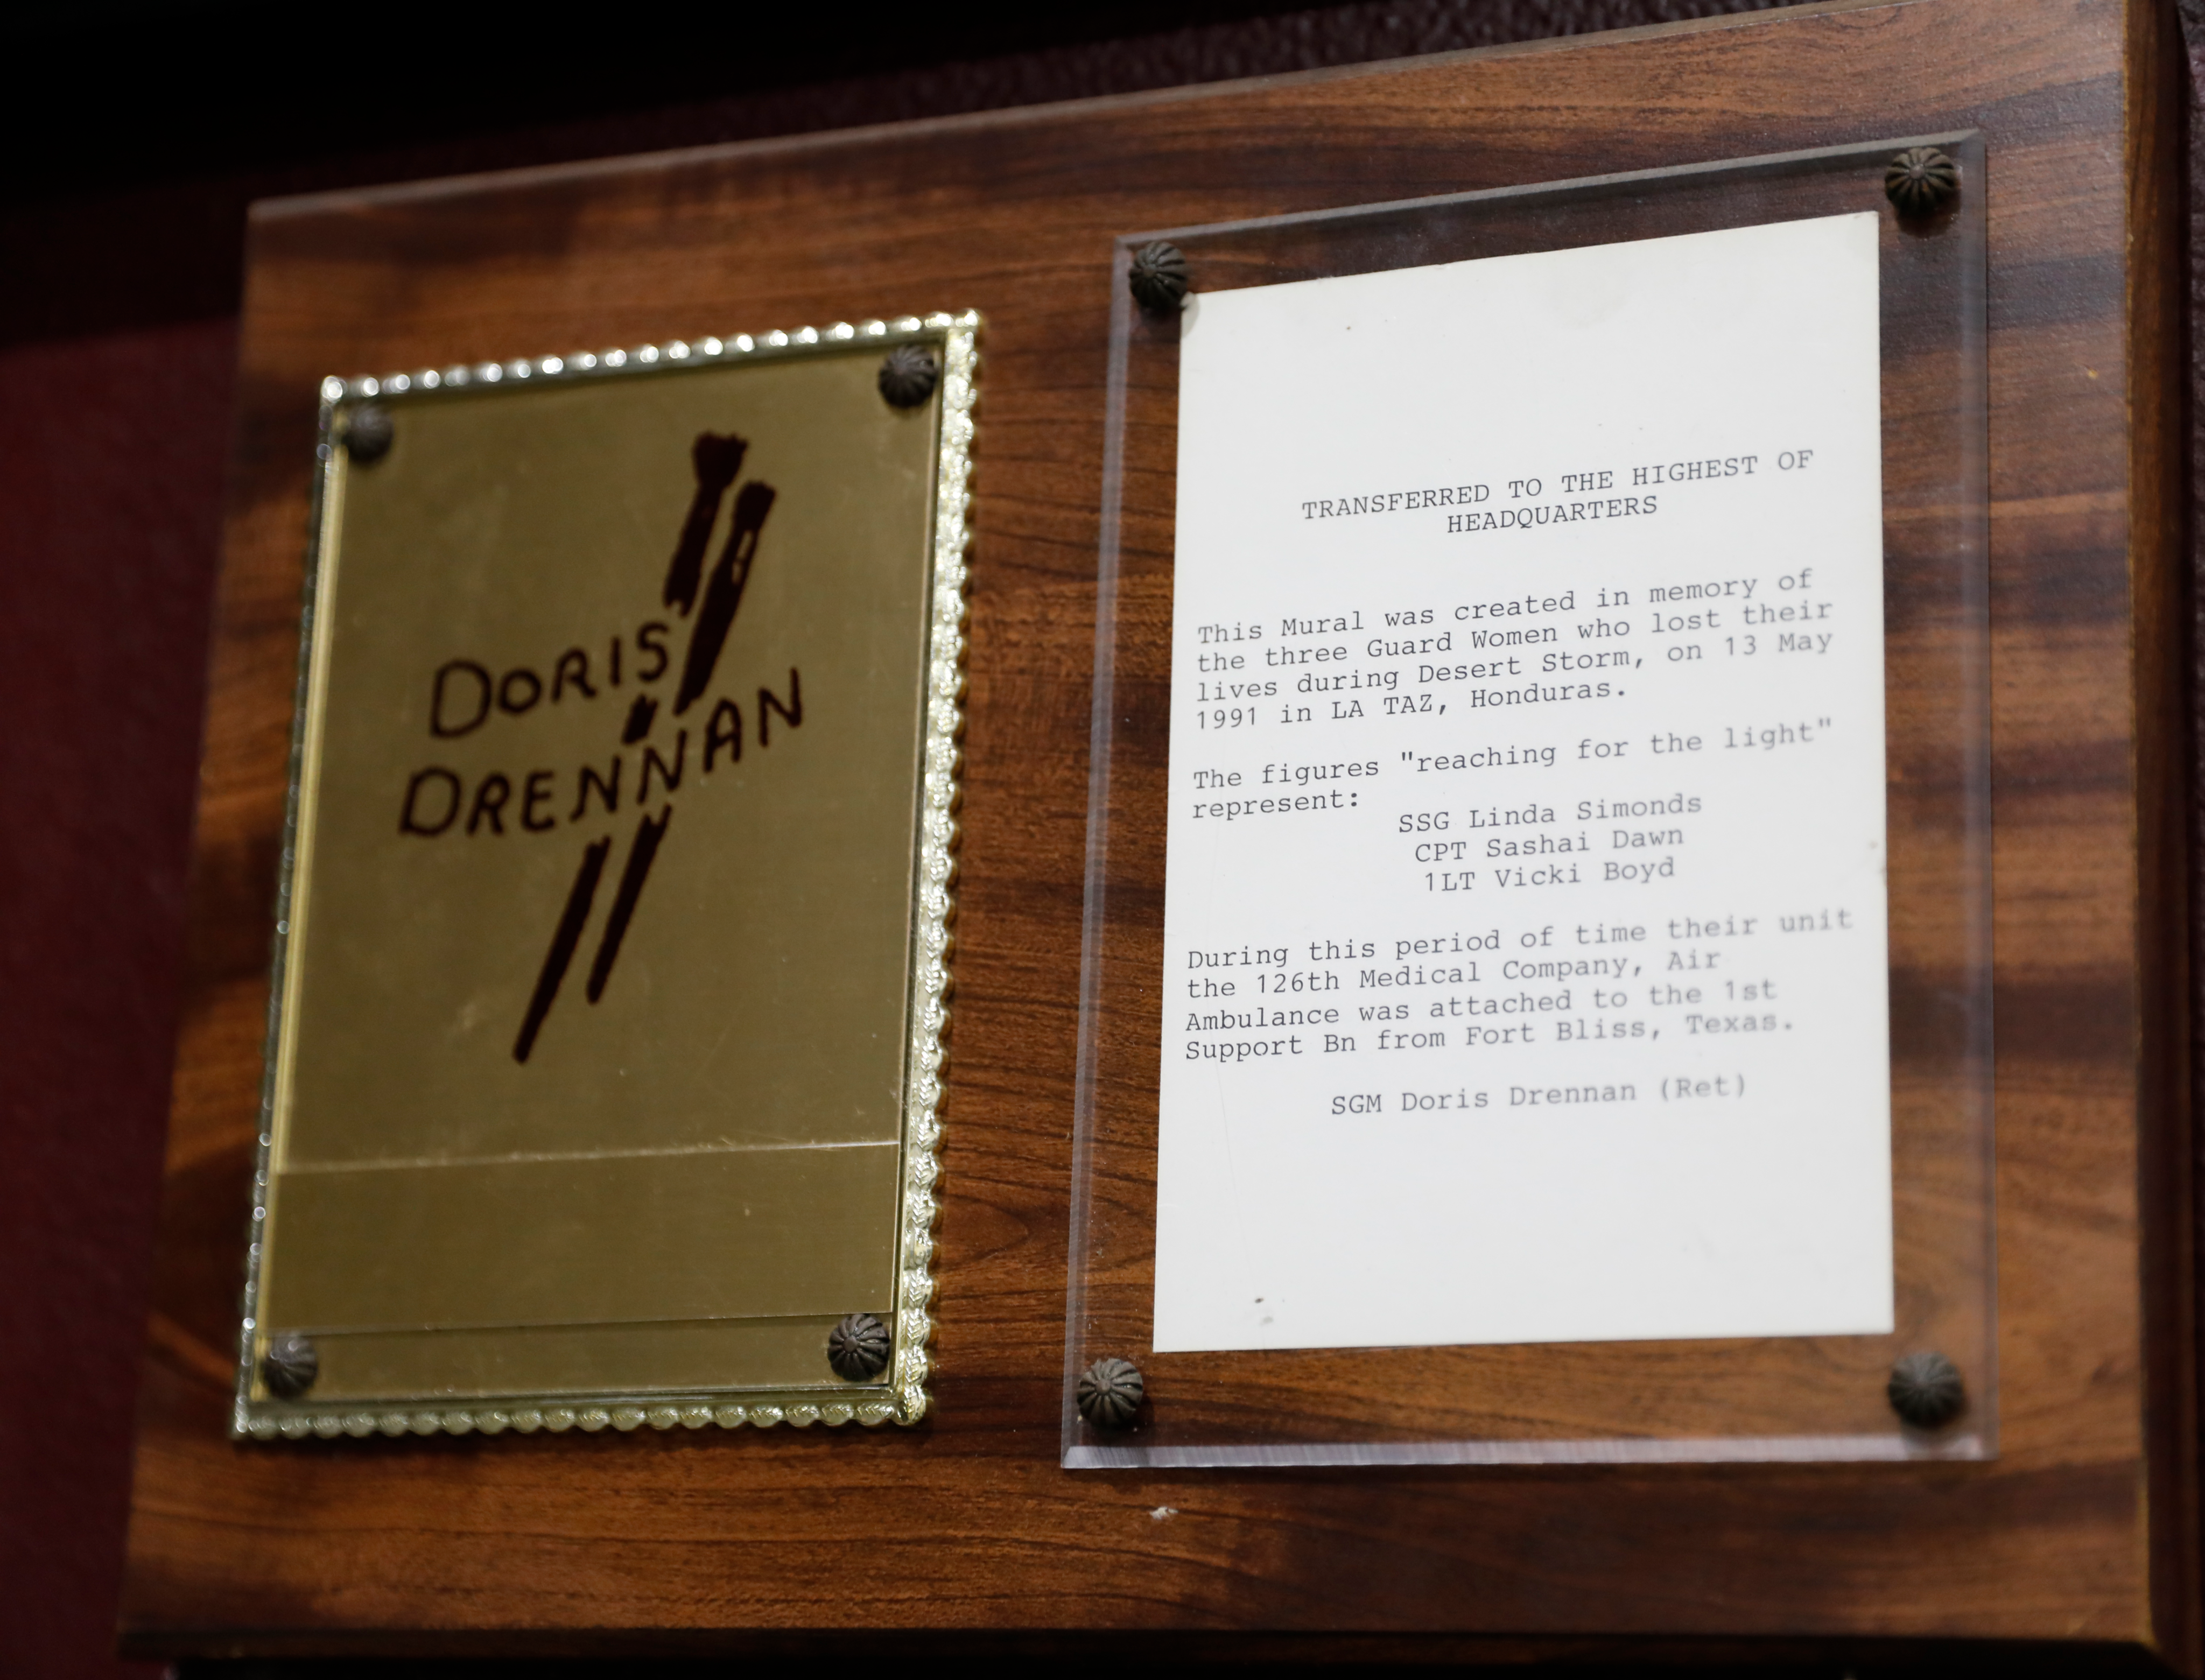 DORIS
DRENNAN
TRANSFERRED TO THE HIGHEST OF
HEADQUARTERS
This Mural was created in memory of
the three Guard Women who lost their
lives during Desert Storm, on 13 May
1991 in LA TAZ, Honduras.
The figures "reaching for the light"
represent:
SSG Linda Simonds
CPT Sashai Dawn
1LT Vicki Boyd
During this period of time their unit
the 126th Medical Company, Air
Ambulance was attached to the 1st
Support Bn from Fort Bliss, Texas.
SGM Doris Drennan (Ret)